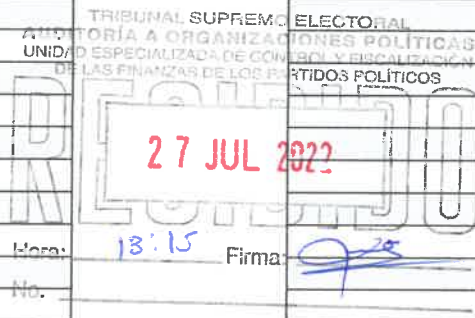 TRIBUNAL SUPREMO ELECTORAL
AUDITORÍA A ORGANIZACIONES POLÍTICAS
UNIDAD ESPECIALIZADA DE CONTROL Y FISCALIZACIÓN
DE LAS FINANZAS DE LOS PARTIDOS POLÍTICOS
RECIBIDO
27 JUL 2022
Hora: 13:15 Firma:
No.